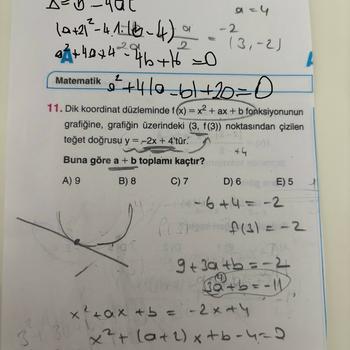 Δ = b² - 4ac
a = 4
(a+2)² - 4.1.(b-4)
a/2 = -2
(3, -2)
a² + 4a + 4 - 4b + 16 = 0
Matematik
a² + 4(a-b) + 20 = 0
11. Dik koordinat düzleminde f(x) = x² + ax + b fonksiyonunun
grafiğine, grafiğin üzerindeki (3, f(3)) noktasından çizilen
teğet doğrusu y = -2x + 4'tür.
+4
Buna göre a + b toplamı kaçtır?
A) 9 B) 8 C) 7 D) 6 E) 5
-6 + 4 = -2
f(3) = -2
9 + 3a + b = -2
3a + b = -11
x² + ax + b = -2x + 4
x² + (a+2)x + b - 4 = 0